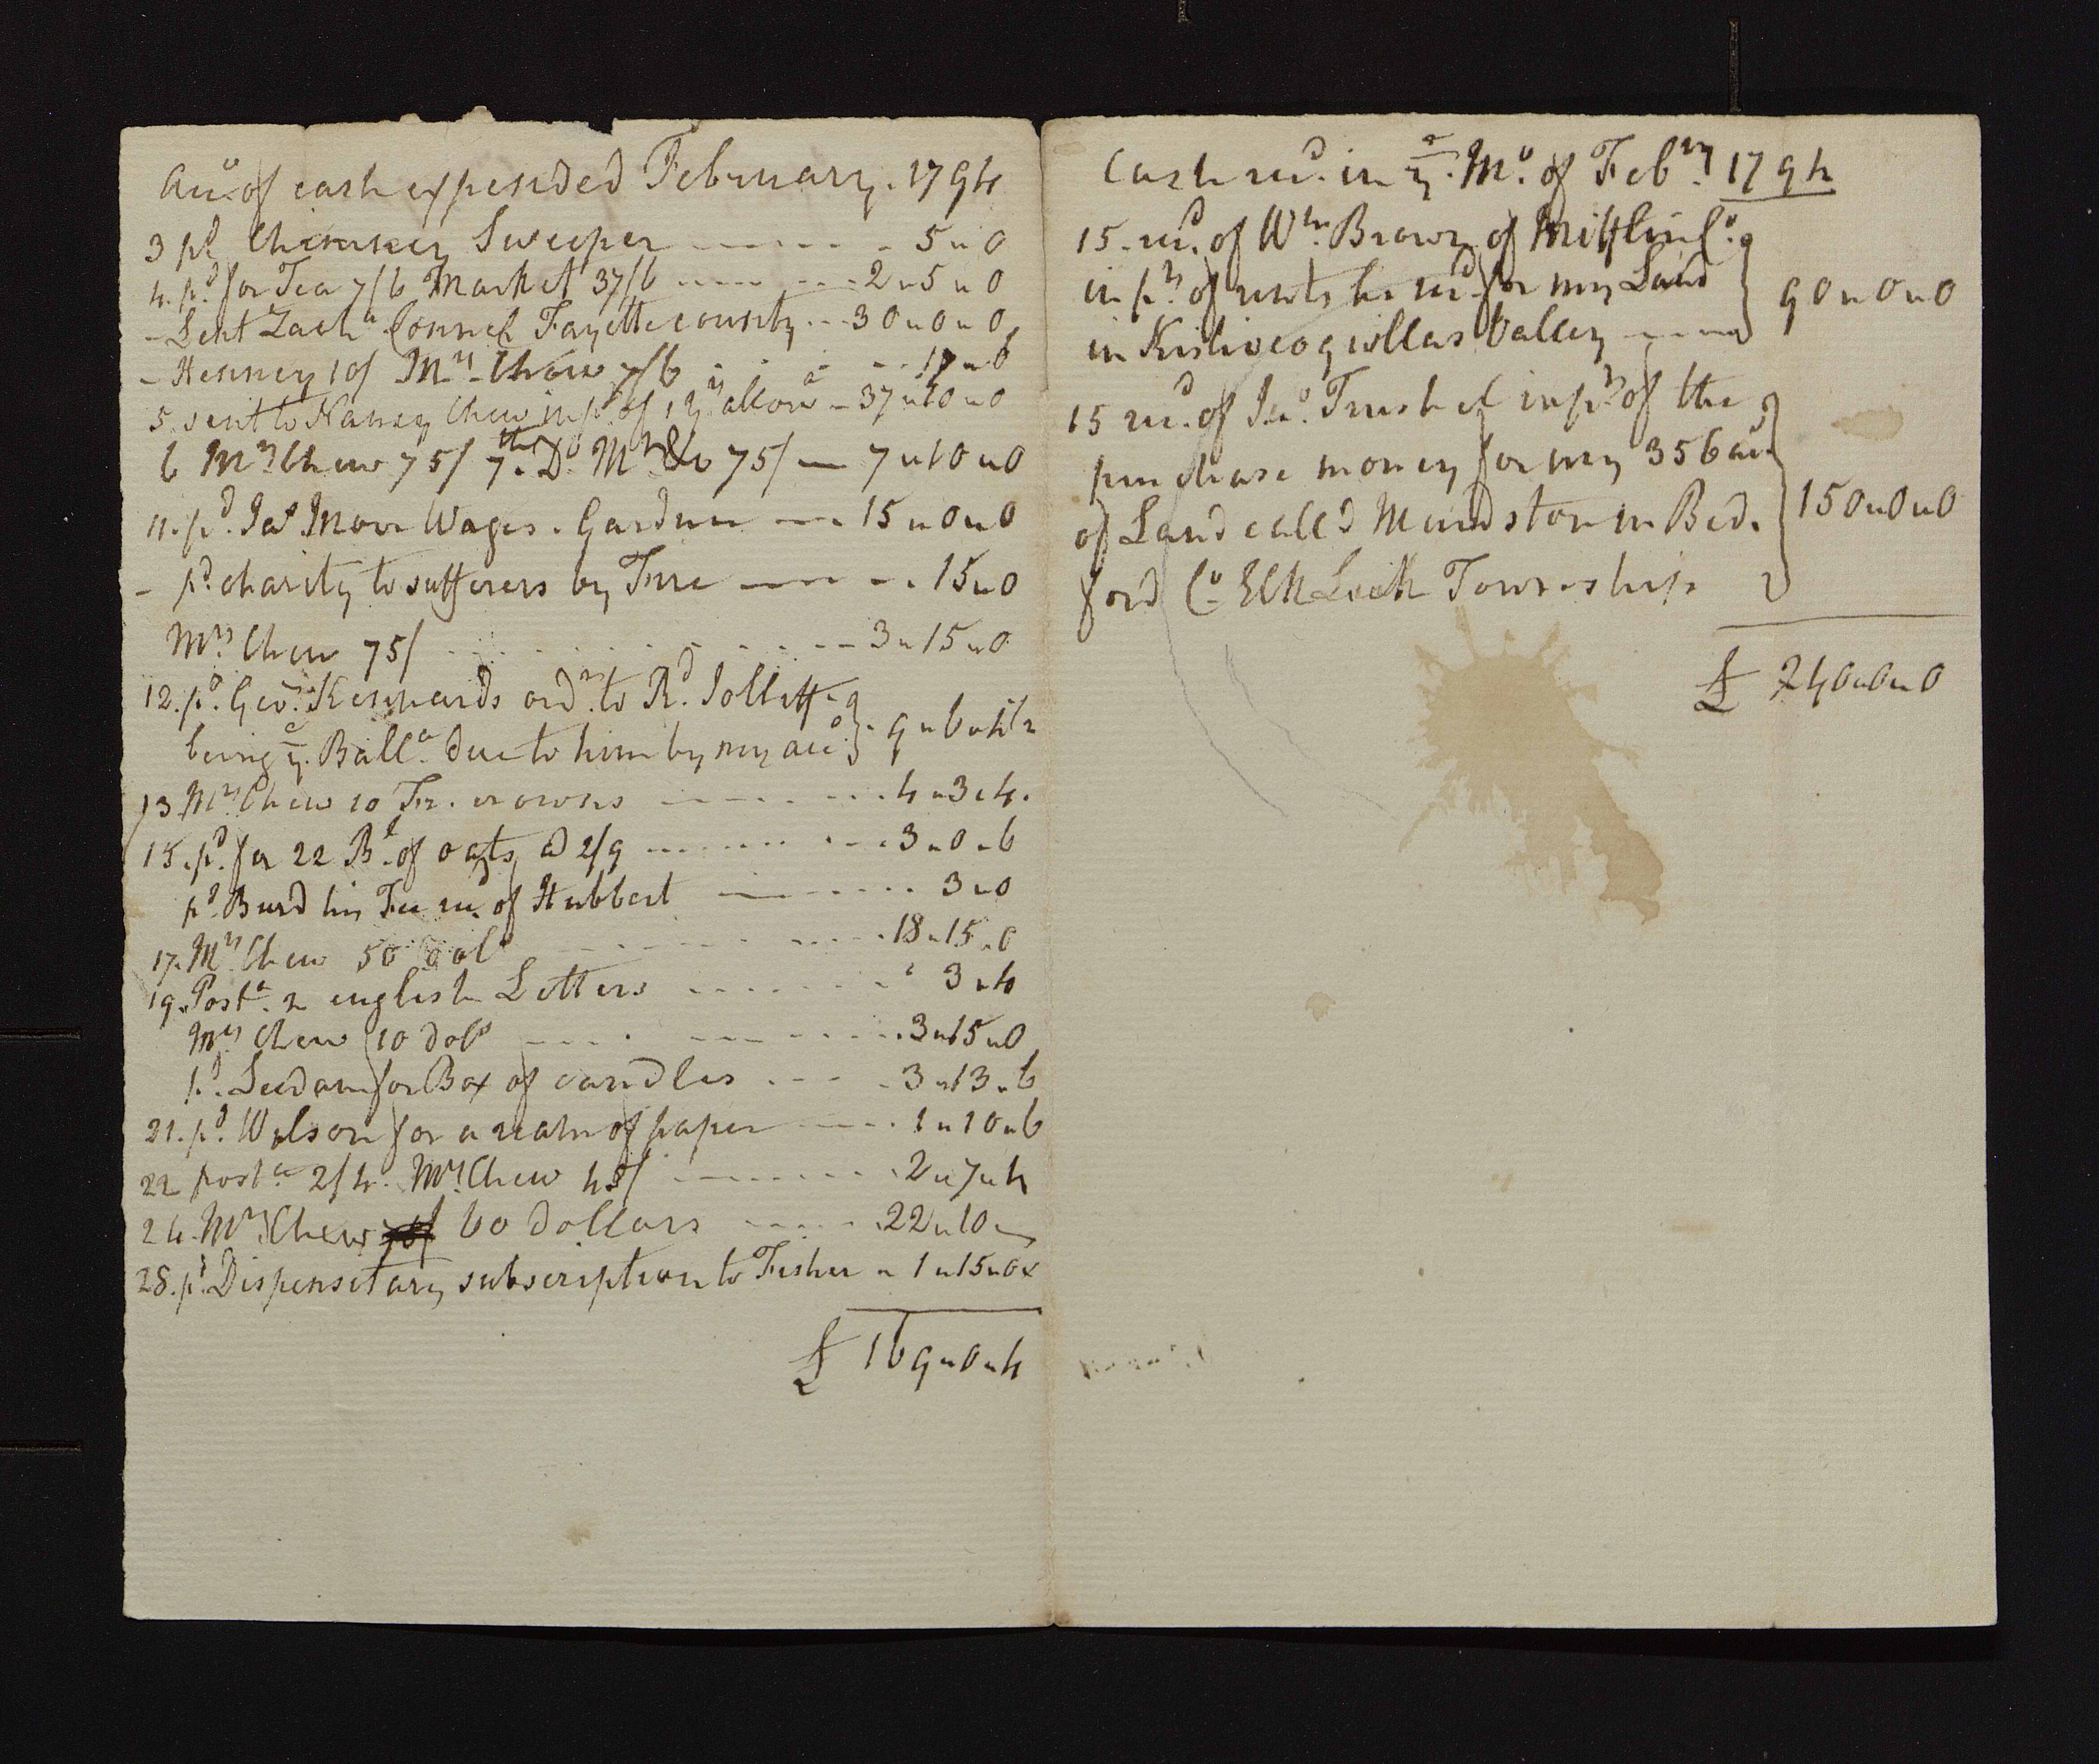 Acco. of cash expended February. 1794
3 pd. Chimney Sweeper ---- 5 " 0
4. pd. for Tea 7/6 Market 37/6 ---- 2 " 5 " 0
- Lent Zacha. Connel Fayette county -- 30 " 0 " 0
- Henney 10/ Mrs. Chew 7/6 ---- 17 " 6
5. sent to Nancy Chew in pt. of 1 yrs. allowa. - 37 " 10 " 0
6 Mrs. Chew 75/ 7th. Do. Mrs. Do 75/ -- 7 " 10 " 0
11. pd. Jas. Wages. Gardner --- 15 " 0 " 0
- pd. charity to sufferers by Fire ---- 15 " 0
Mrs. Chew 75/ ---- 3 " 15 " 0
12. pd. Geo. Kennards ordr. to Rd. Jolliff
being ye. Balla. due to him by my acco. 9 " 6 " 4 1/2
13 Mrs. Chew 10 Fr. crowns ---- 4 " 3 " 4.
15. pd. for 22 Bl. of oats @ 2/9 ---- 3 " 0 " 6
pd. Burd his Fee recd. of Hubbert ---- 3 " 0
17. Mrs. Chew 50 dols ---- 18 " 15 " 0
19. Posta. 2 english Letters ---- 3 " 4
Mrs. Chew 10 dols ---- 3 " 15 " 0
pd. for Box of candles ---- 3 " 13 " 6
21. pd. Wilson for a ream of paper ---- 1 " 10 " 6
22 posta. 2/4. Mrs. Chew 45/ ---- 2 " 7 " 4
24. Mrs. Chew 60 dollars ---- 22 " 10 "
28. pd. Dispensitary subscription to Fisher " 1 " 15 " 0 x
£ 169 " 0 " 4
Cash recd. in ye. Mo. of Febry. 1794
15. recd. of Wm. Brown of Mifflin Co.
in pt. of rents he recd. for my Land
in Kishocoquillas Valley ---- 90 " 0 " 0
15 recd. of Jno. in pt. of the
purchase money for my 356 acr.
of Land called in Bed- 150 " 0 " 0
ford Co. Elk Lick Township
£ 240 " 0 " 0